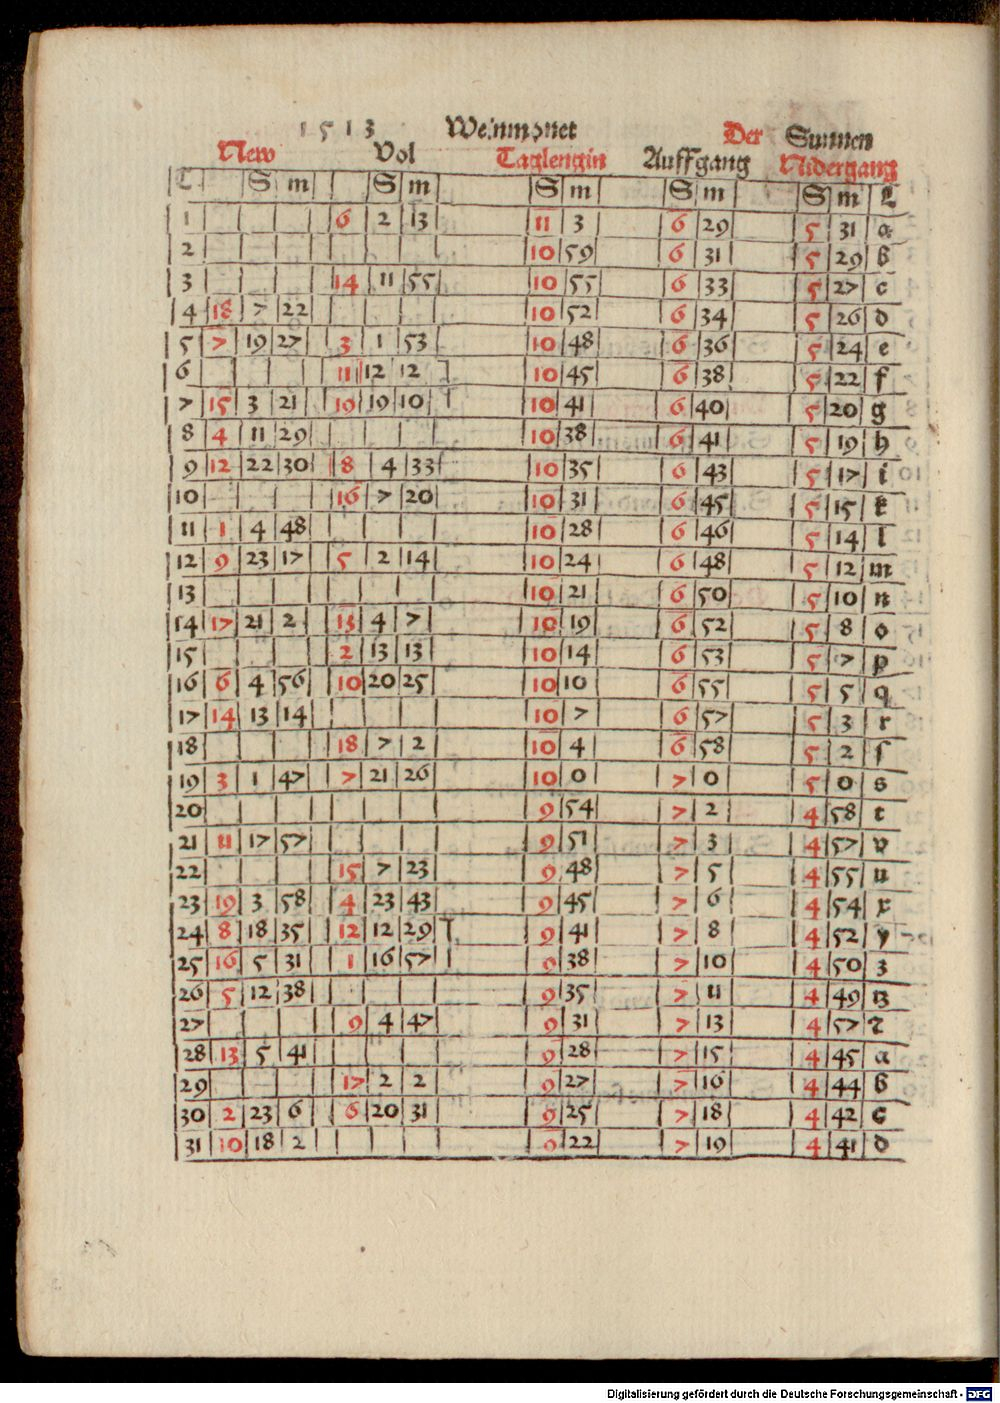 1513 Weinmonet Der Sunnen
New Vol Taglengin Auffgang Nidergang
T S m S m S m S m S m L
1 6 2 13 11 3 6 29 5 31 a
2 10 59 6 31 5 29 b
3 14 11 55 10 55 6 33 5 27 c
4 18 7 22 10 52 6 34 5 26 d
5 7 19 27 3 1 53 10 48 6 36 5 24 e
6 11 12 12 10 45 6 38 5 22 f
7 15 3 21 19 19 10 10 41 6 40 5 20 g
8 4 11 29 10 38 6 41 5 19 h
9 12 22 30 8 4 33 10 35 6 43 5 17 i
10 16 7 20 10 31 6 45 5 15 k
11 1 4 48 10 28 6 46 5 14 l
12 9 23 17 5 2 14 10 24 6 48 5 12 m
13 10 21 6 50 5 10 n
14 17 21 2 13 4 7 10 19 6 52 5 8 o
15 2 13 13 10 14 6 53 5 7 p
16 6 4 56 10 20 25 10 10 6 55 5 5 q
17 14 13 14 10 7 6 57 5 3 r
18 18 7 2 10 4 6 58 5 2 ſ
19 3 1 47 7 21 26 10 0 7 0 5 0 s
20 9 54 7 2 4 58 t
21 11 17 57 9 51 7 3 4 57 v
22 15 7 23 9 48 7 5 4 55 u
23 19 3 58 4 23 43 9 45 7 6 4 54 x
24 8 18 35 12 12 29 9 41 7 8 4 52 y
25 16 5 31 1 16 57 9 38 7 10 4 50 z
26 5 12 38 9 35 7 11 4 49
27 9 4 47 9 31 7 13 4 57
28 13 5 41 9 28 7 15 4 45 a
29 17 2 2 9 27 7 16 4 44 b
30 2 23 6 6 20 31 9 25 7 18 4 42 c
31 10 18 2 9 22 7 19 4 41 d
Digitalisierung gefördert durch die Deutsche Forschungsgemeinschaft - DFG